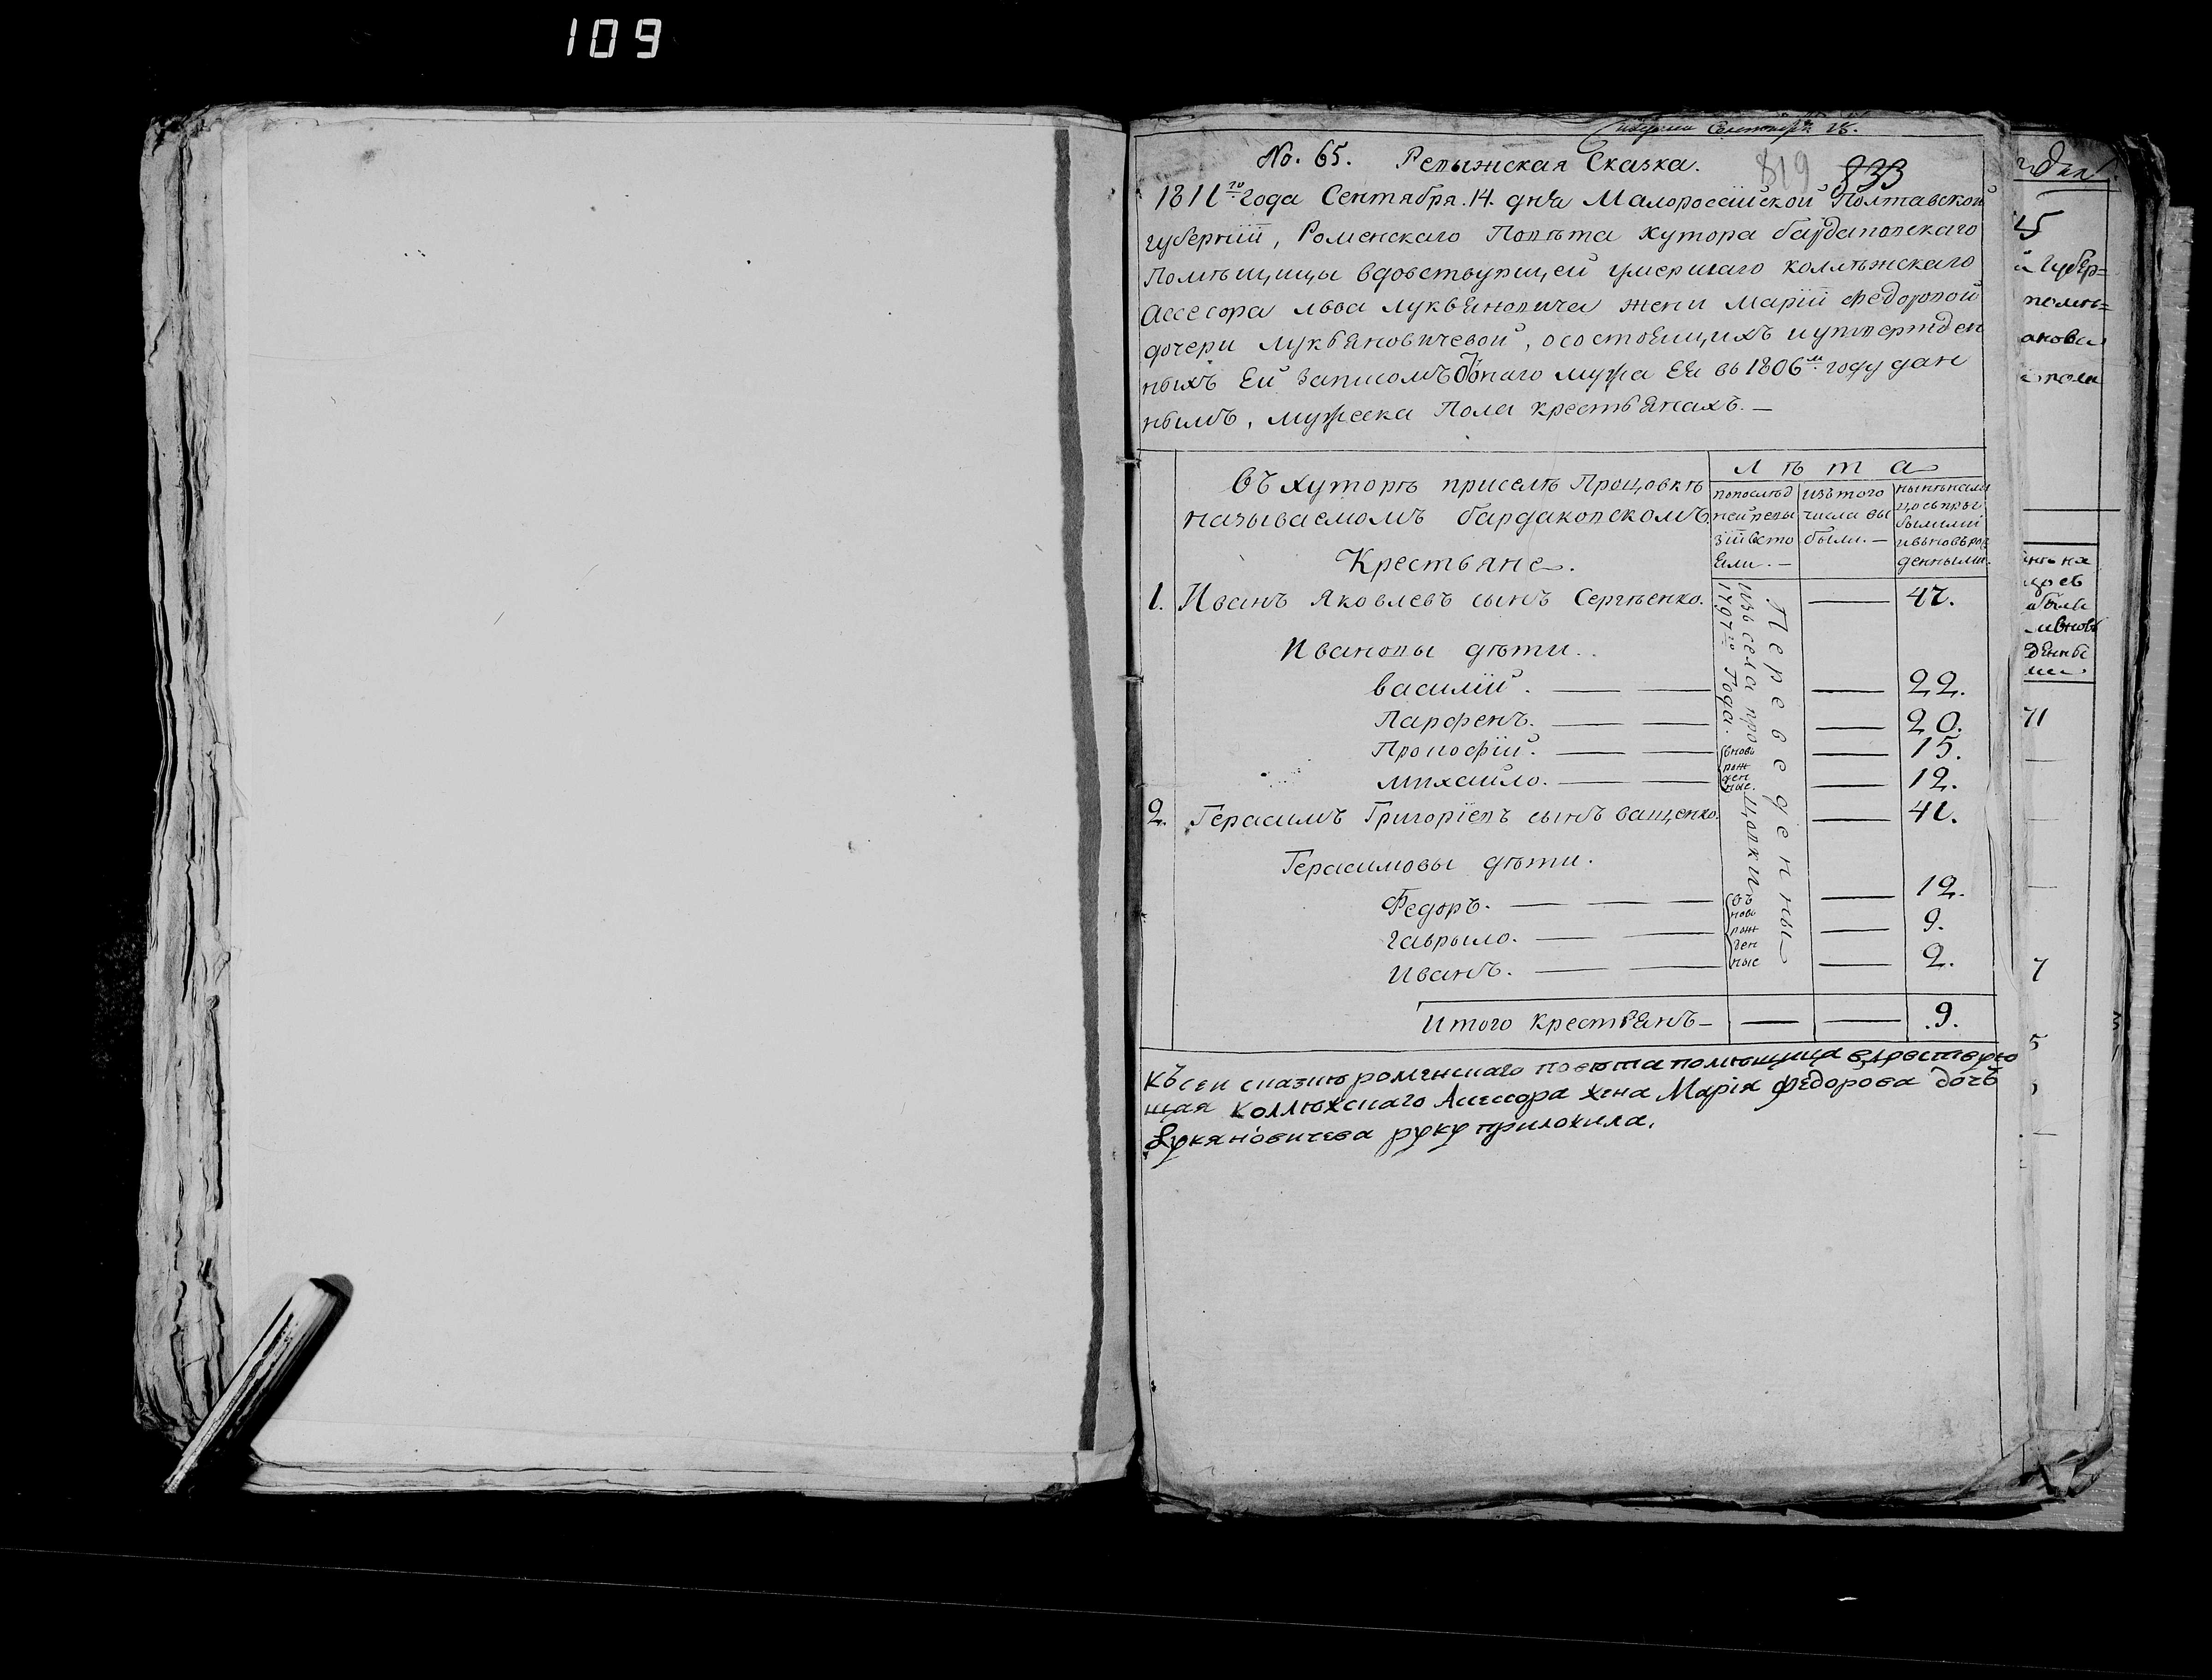 109
Сентября 28.
No. 65. Ревыжская Сказка. 819 833
1811го года Сентября. 14. дня Малороссійской Полтавской
губерніи, Роменскаго Повѣта хутора бардаковскаго
Помѣщицы вдовствующей умершаго коллѣжскаго
Ассесора льва лукьяновича жени Маріи федоровой
дочери лукьяновичевой, осостоящихъ и утвержден
ныхъ Ей записомъ онаго мужа Ея въ 1806м году дан
нымъ, мужеска Пола крестьянахъ. —
Въ хуторѣ приселѣ Процовкѣ
называемомъ бардаковскомъ
Крестьяне.
лѣта
попослѣд
ней реви
зіи всто
яли. —
изътого
числа вы
были. —
нынѣнали
цосьпри
былими
ивьновьрож
денными.
Переведенны
изъ села процовки
1797го Года.
1. Иванъ Яковлевъ сынъ Сергѣенко. — 47.
Ивановы дѣти.
василій. — — — 22.
Парфенъ. — — — 20.
Прокофій. — — — 15.
михайло. — — — 12.
вновь
рож
ден
ные.
2. Герасимъ Григоріевъ сынъ ващенко. — 41.
Герасимовы дѣти.
Федоръ. — — — 12.
гаврыло. — — — 9.
иванъ. — — — 2.
въ
новь
рож
ден
ные
Итого крестьянъ — — — 9.
Къ сей сказкѣ роменскаго повѣта помѣщица вдовствую
щая коллѣжскаго Асессора жена Марія федорова дочь
Лукяновичева руку приложила.
45
й губер=
помѣ=
анова
71
7
5